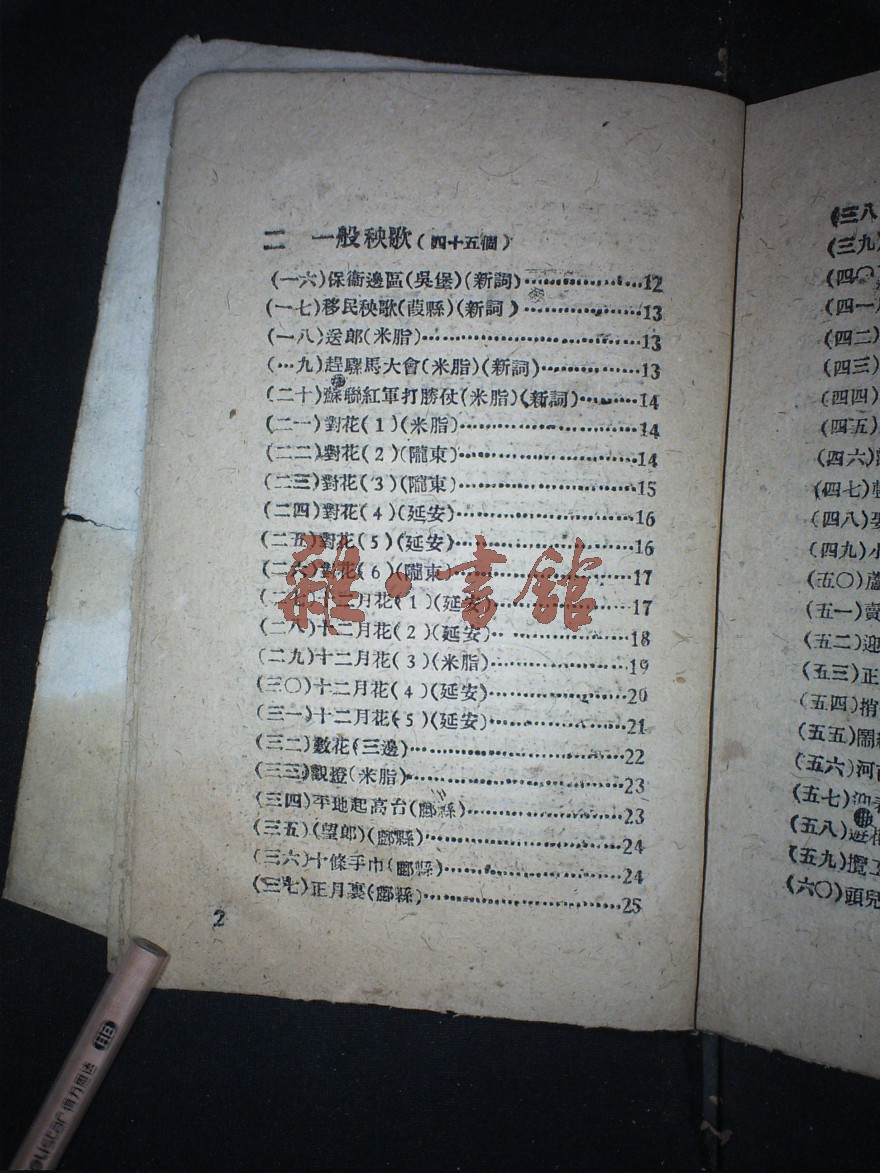 二 一般秧歌(四十五個)
(一六)保衞邊區(吳堡)(新詞)………………12
(一七)移民秧歌(葭縣)(新詞)………………13
(一八)送郎(米脂)………………13
(一九)趕騾馬大會(米脂)(新詞)………………13
(二十)蘇聯紅軍打勝仗(米脂)(新詞)………14
(二一)對花(1)(米脂)………………14
(二二)對花(2)(隴東)………………14
(二三)對花(3)(隴東)………………15
(二四)對花(4)(延安)………………16
(二五)對花(5)(延安)………………16
(二六)對花(6)(隴東)………………17
(二七)十二月花(1)(延安)………………17
(二八)十二月花(2)(延安)………………18
(二九)十二月花(3)(米脂)………………19
(三〇)十二月花(4)(延安)………………20
(三一)十二月花(5)(延安)………………21
(三二)數花(三邊)………………22
(三三)觀燈(米脂)………………23
(三四)平地起高台(鄜縣)………………23
(三五)(望郎)(鄜縣)………………24
(三六)十條手巾(鄜縣)………………24
(三七)正月裏(鄜縣)………………25
2
雜·書館
(三八
(三九)
(四〇)
(四一)
(四二)
(四三)
(四四)
(四五)
(四六)
(四七)
(四八)
(四九)小
(五〇)蘆
(五一)賣
(五二)迎
(五三)正
(五四)捎
(五五)鬧
(五六)河南
(五七)迎春
(五八)遊
(五九)攬工
(六〇)頭兒
HB